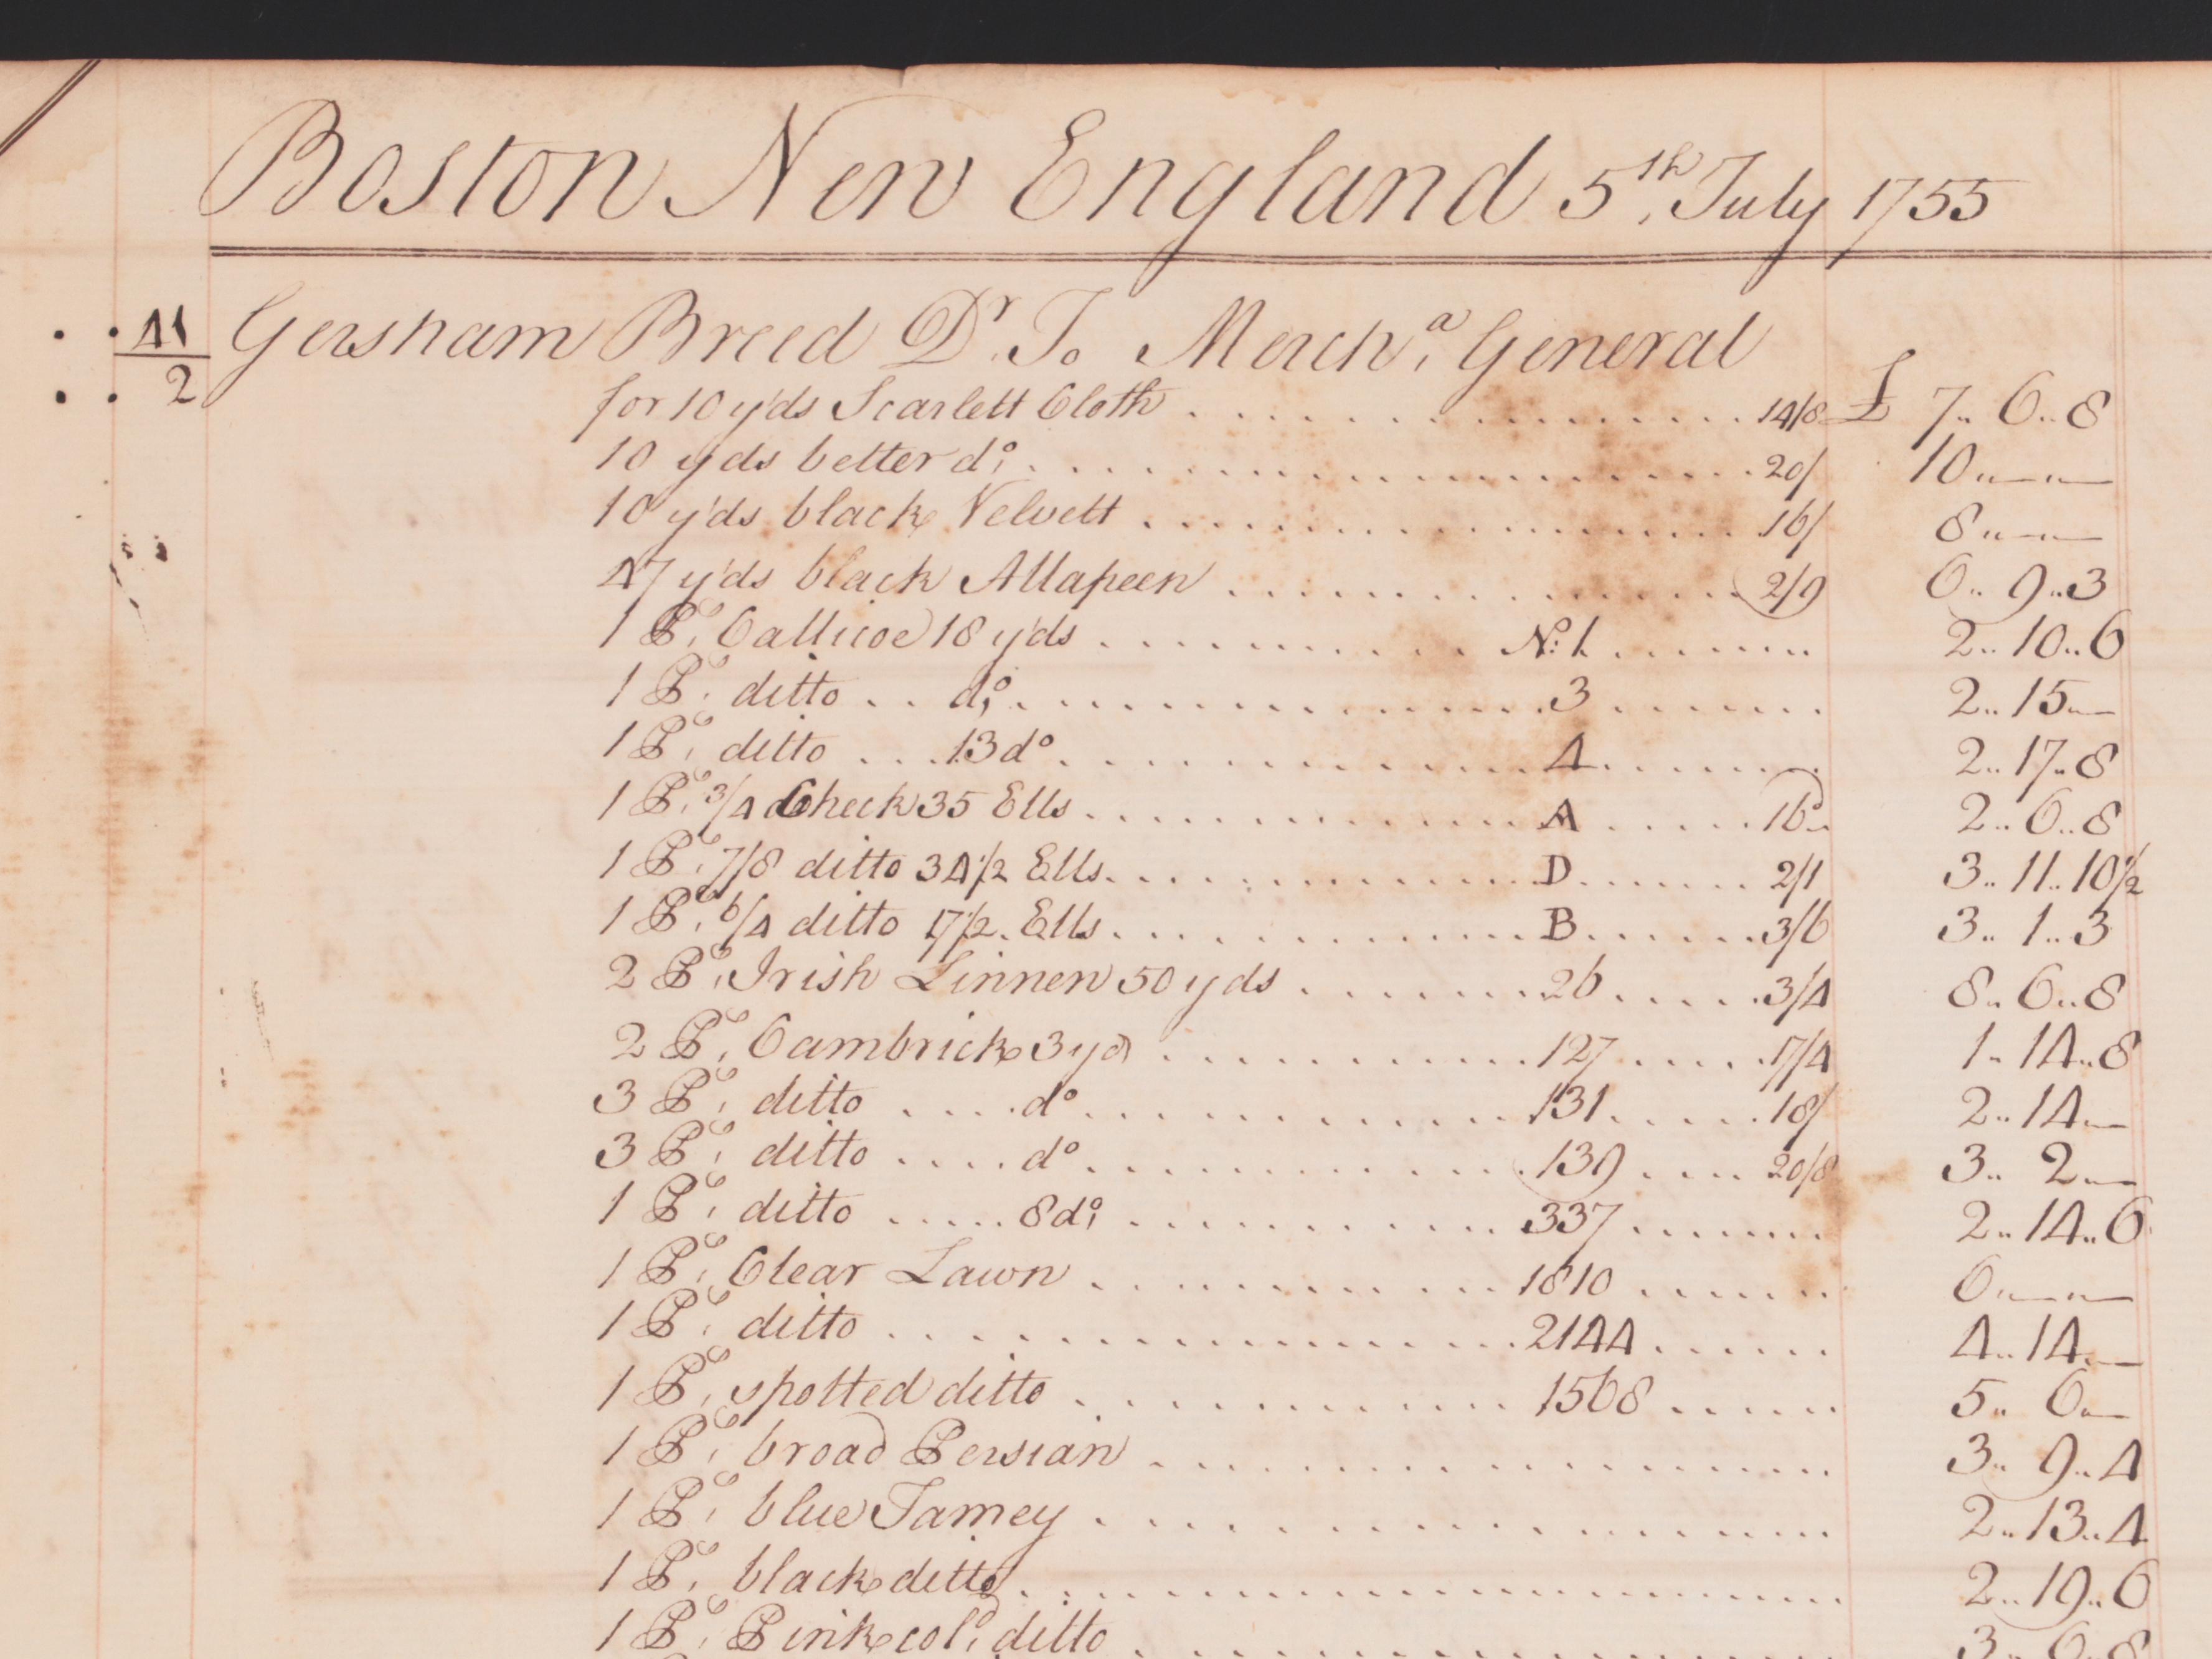 Boston New England 5th July 1755
41 Gersham Breed Dr. To Mercha. General
2
for 10 yds Scarlett Cloth 14/8 £ 7.. 6.. 8
10 yds better do. 20/ 10 .. — .. —
10 yds black Velvett 16/ 8 .. — .. —
47 yds black Allapeen 2/9 6.. 9.. 3
1 Pe. Callicoe 18 yds No. 1 2.. 10.. 6
1 Pe. ditto .. do. 3 2.. 15 .. —
1 Pe. ditto ... 13 do 4 2.. 17.. 8
1 Pe. 3/4 Check 35 Ells A 16 2.. 6.. 8
1 Pe. 7/8 ditto 34 1/2 Ells D 2/1 3.. 11.. 10 1/2
1 Pe. 6/4 ditto 17 1/2 Ells B 3/6 3.. 1.. 3
2 Pe. Irish Linnen 50 yds 26 3/4 8.. 6.. 8
2 Pe. Cambrick 3 yd 127 17/4 1.. 14.. 8
3 Pe. ditto .... do 131 18/ 2.. 14 .. —
3 Pe. ditto .... do 139 20/8 3.. 2 .. —
1 Pe. ditto ..... 8 do. 337 2.. 14.. 6
1 Pe. Clear Lawn 1810 6 .. — .. —
1 Pe. ditto 2144 4.. 14 .. —
1 Pe. spotted ditto 1568 5.. 6 .. —
1 Pe. broad Persian 3.. 9.. 4
1 Pe. blue Tamey 2.. 13.. 4
1 Pe. black ditto 2.. 19.. 6
1 Pe. Pink cold. ditto 3.. 6.. 8